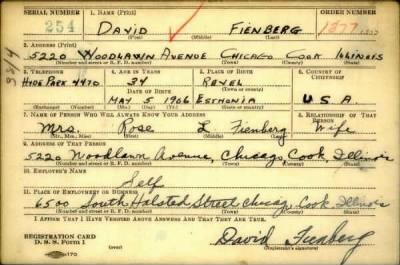 SERIAL NUMBER 1. NAME (Print) ORDER NUMBER
254 DAVID FIENBERG 1377
(First) (Middle) (Last)
2. ADDRESS (Print)
5220 WOODLAWN AVENUE CHICAGO COOK ILLINOIS
(Number and street or R. F. D. number) (Town) (County) (State)
3. TELEPHONE 4. AGE IN YEARS 5. PLACE OF BIRTH 6. COUNTRY OF CITIZENSHIP
HYDE PARK 4470 34 REVEL
DATE OF BIRTH (Town or county)
MAY 5 1906 ESTHONIA U S A
(Exchange) (Number) (Mo.) (Day) (Yr.) (State or country)
7. NAME OF PERSON WHO WILL ALWAYS KNOW YOUR ADDRESS 8. RELATIONSHIP OF THAT PERSON
Mrs. Rose L Fienberg Wife
(Mr., Mrs., Miss) (First) (Middle) (Last)
9. ADDRESS OF THAT PERSON
5220 Woodlawn Avenue, Chicago Cook, Illinois
(Number and street or R. F. D. number) (Town) (County) (State)
10. EMPLOYER'S NAME
Self
11. PLACE OF EMPLOYMENT OR BUSINESS
6500 South Halsted Street Chicago, Cook, Illinois
(Number and street or R. F. D. number) (Town) (County) (State)
I AFFIRM THAT I HAVE VERIFIED ABOVE ANSWERS AND THAT THEY ARE TRUE.
REGISTRATION CARD
D. S. S. Form 1 David Fienberg
(Registrant's signature)